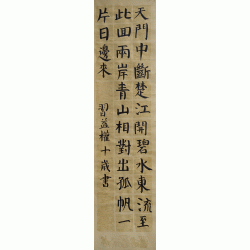 天門中斷楚江開碧水東流至
此回兩岸青山相對出孤帆一
片日邊來
習益權十歲書